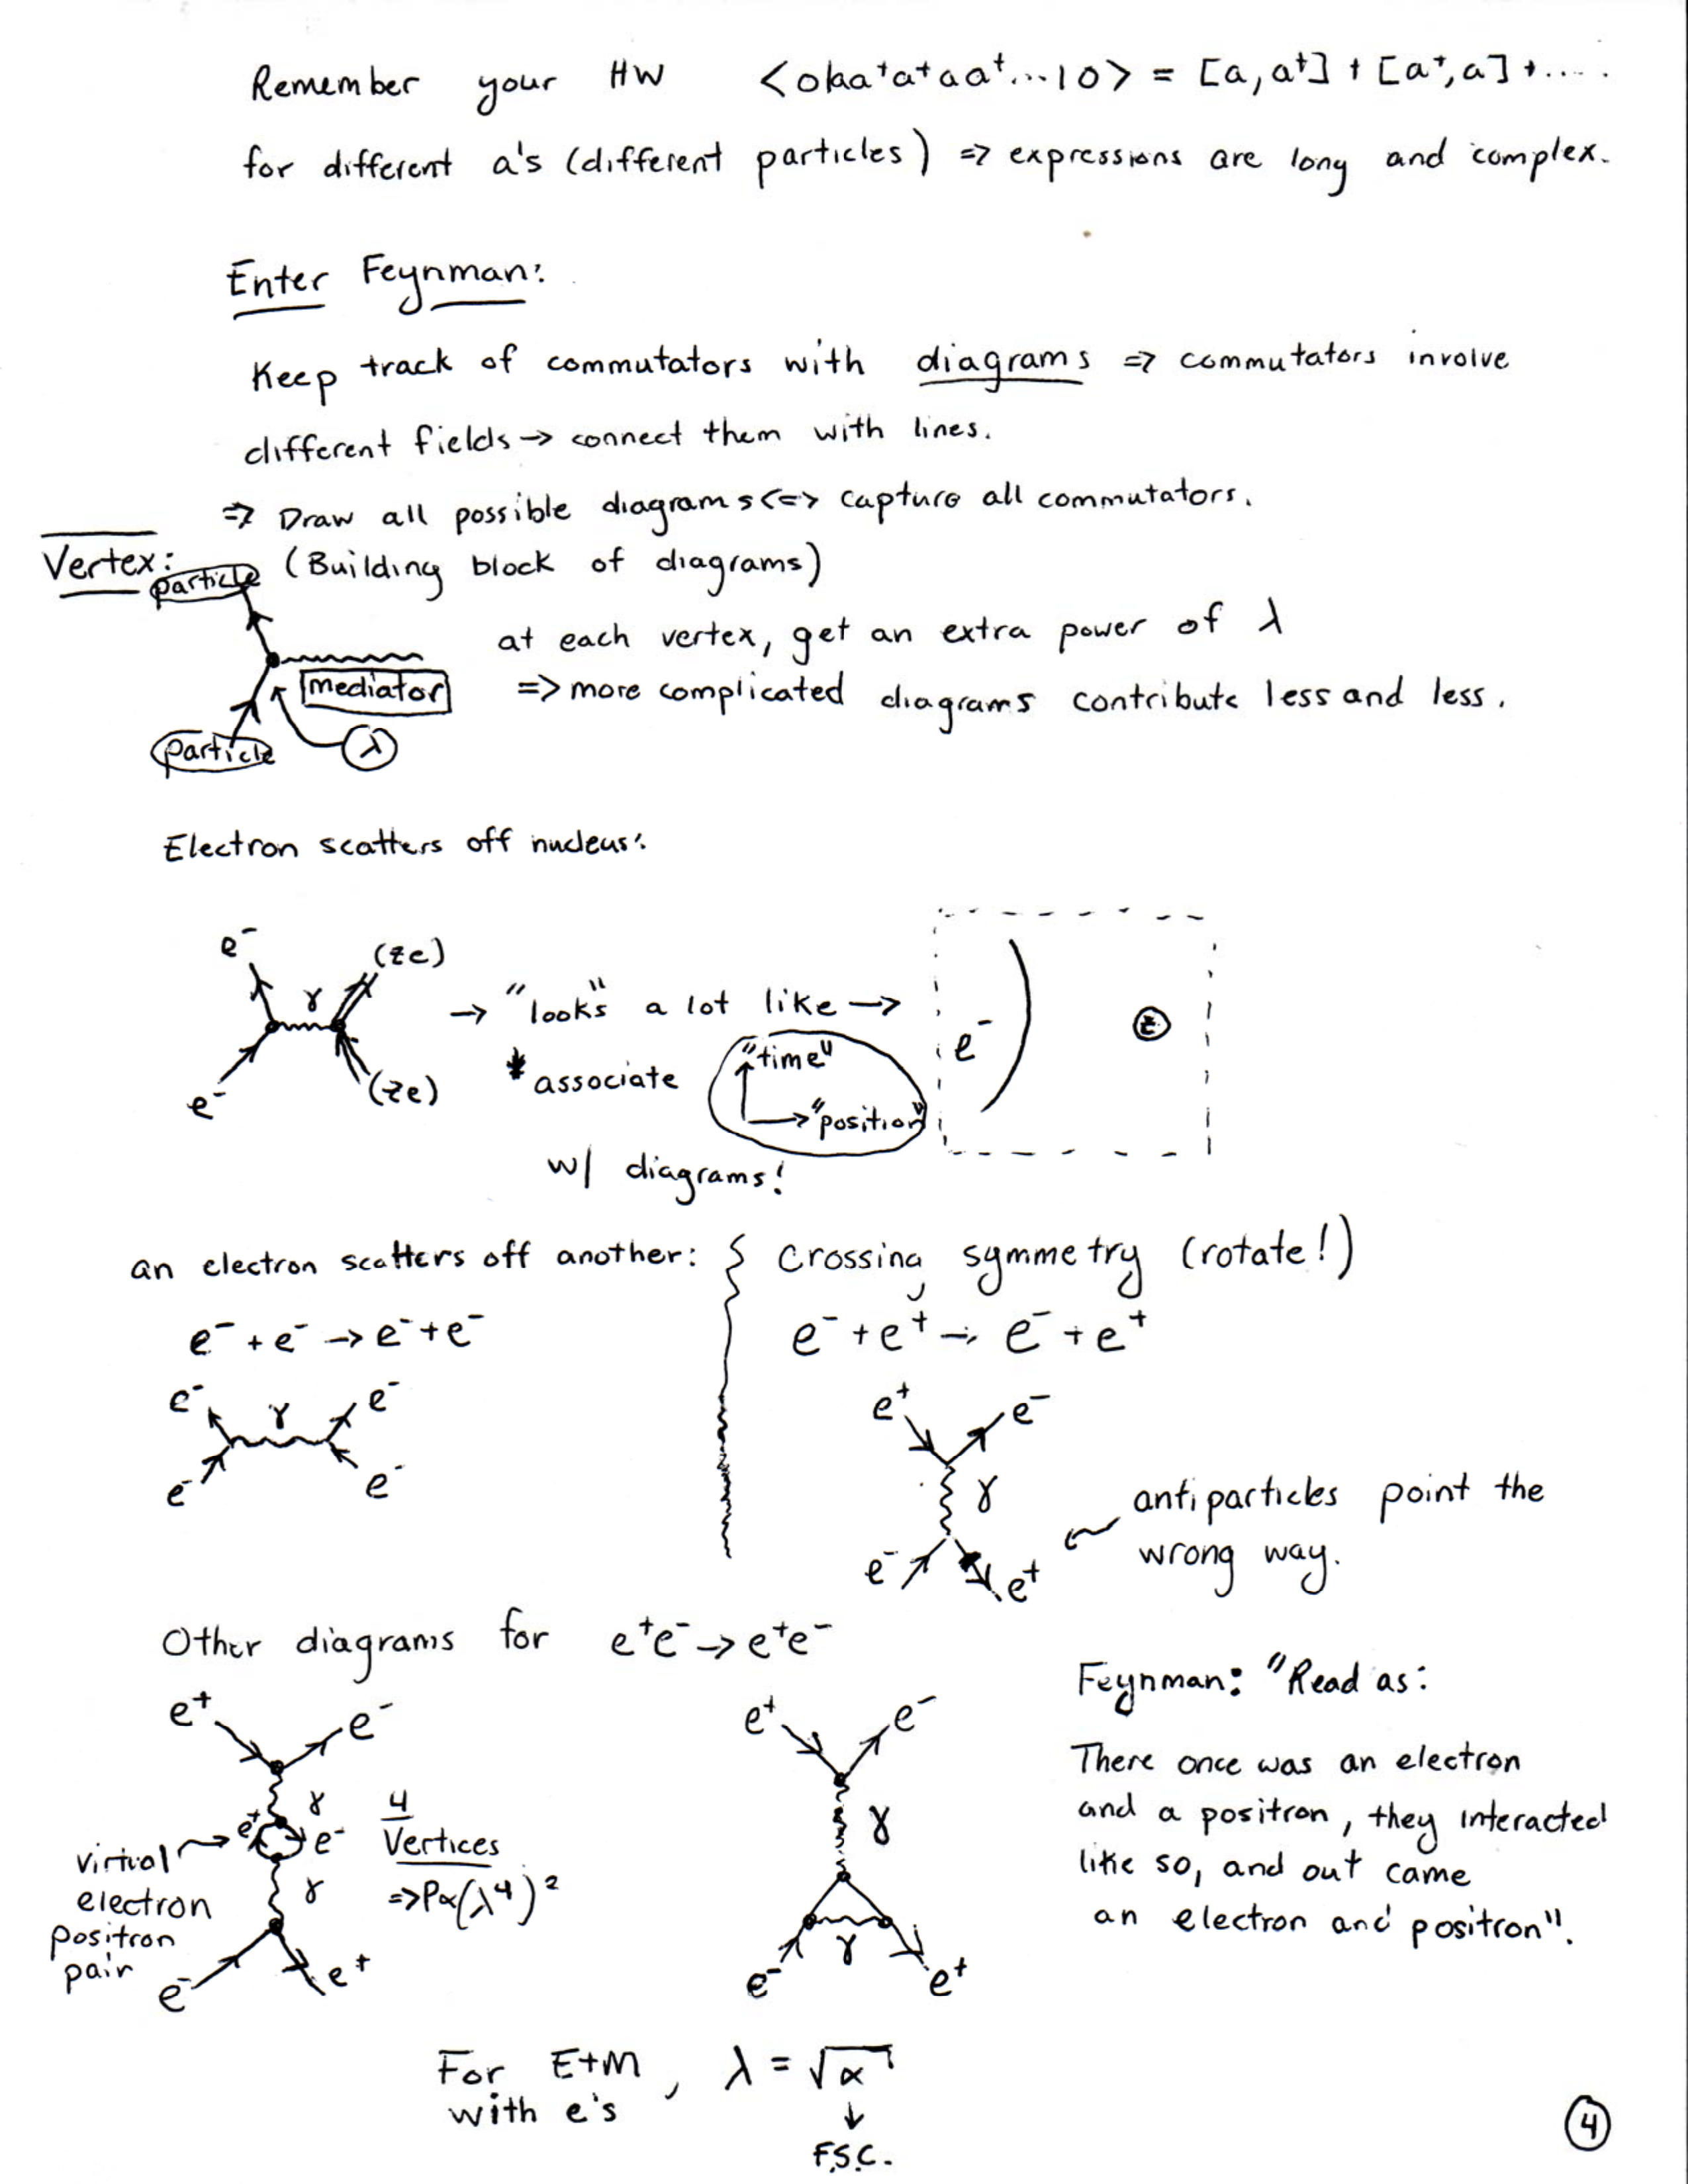 Remember your HW <0|aa⁺a⁺aa⁺...|0> = [a, a⁺] + [a⁺, a] + .....
for different a's (different particles) => expressions are long and complex.
Enter Feynman:
Keep track of commutators with diagrams => commutators involve
different fields -> connect them with lines.
=> Draw all possible diagrams <=> capture all commutators.
Vertex: (Building block of diagrams)
particle
at each vertex, get an extra power of λ
mediator
=> more complicated diagrams contribute less and less.
particle λ
Electron scatters off nucleus:
e⁻ (ze)
γ
-> "looks" a lot like ->
e⁻ z
* associate "time"
"position"
e⁻ (ze)
w/ diagrams!
an electron scatters off another:
e⁻ + e⁻ -> e⁻ + e⁻
e⁻ γ e⁻
e⁻ e⁻
Crossing symmetry (rotate!)
e⁻ + e⁺ -> e⁻ + e⁺
e⁺ e⁻
γ
e⁻ e⁺
antiparticles point the
wrong way.
Other diagrams for e⁺e⁻ -> e⁺e⁻
e⁺ e⁻
γ
e⁺ e⁻
γ
e⁻ e⁺
virtual
electron
positron
pair
4
Vertices
=> P∝(λ⁴)²
e⁺ e⁻
γ
γ
e⁻ e⁺
Feynman: "Read as:
There once was an electron
and a positron, they interacted
like so, and out came
an electron and positron".
For E+M, λ = √α
with e's ↓
F.S.C.
4